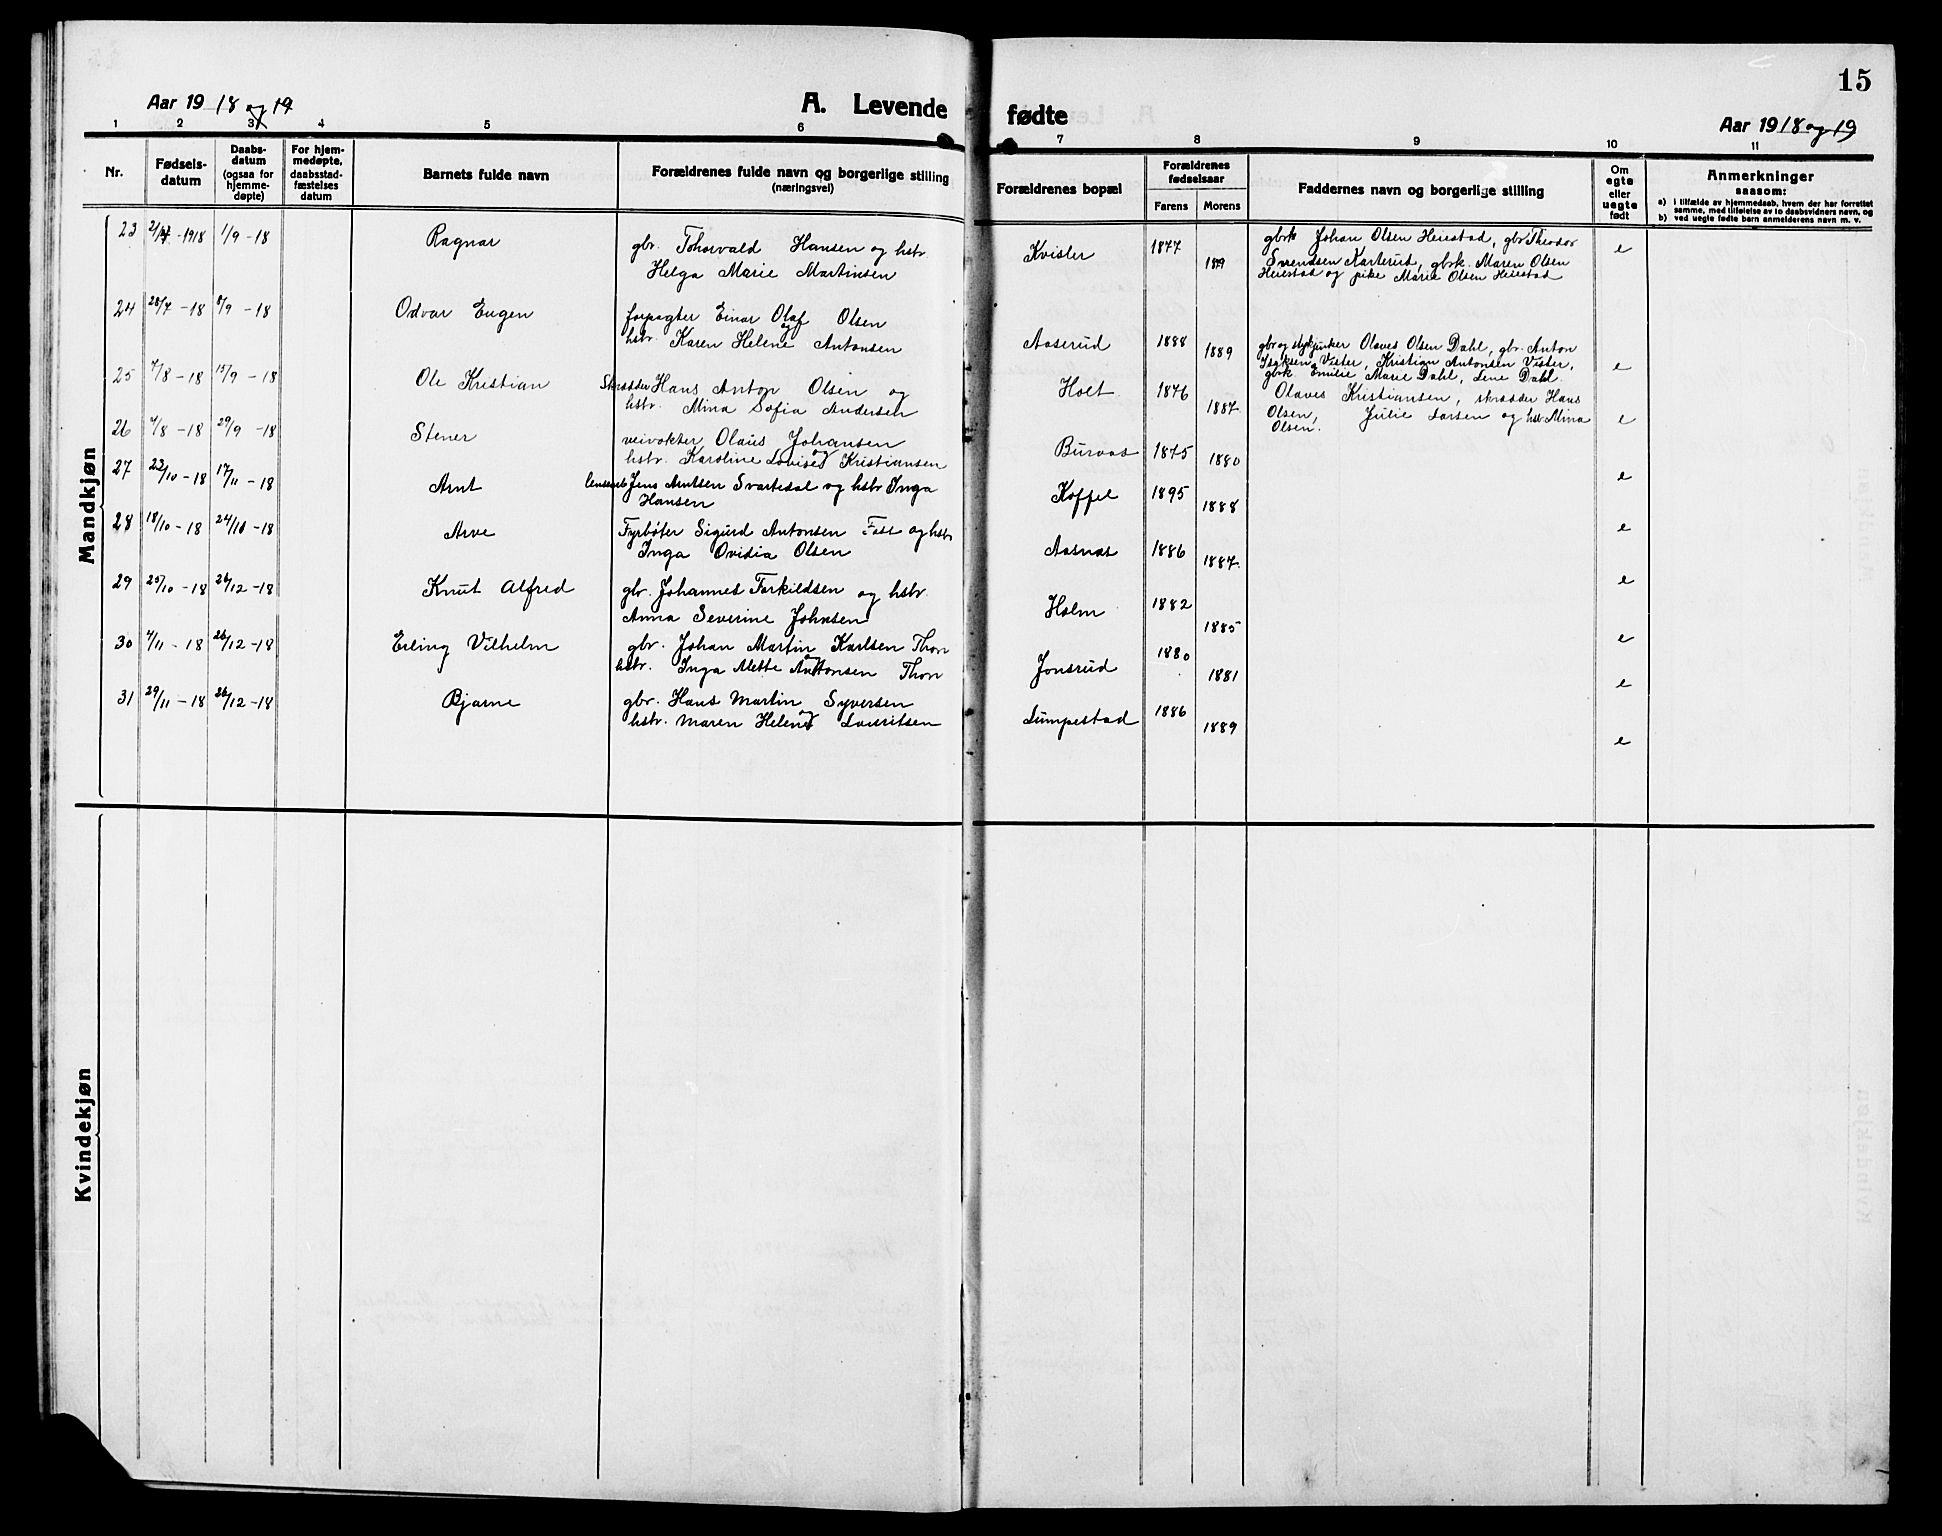 15
Aar 1918 og 19
A. Levende fødte
Aar 1918 og 19
1 2 3 4 5 6 7 8 9 10 11
Nr.
Fødsels-
datum
Daabs-
datum
(ogsaa for
hjemme-
døpte)
For hjem-
medøpte,
daabsstad-
fæstelses
datum
Barnets fulde navn
Forældrenes fulde navn og borgerlige stilling
(næringsvei)
Forældrenes bopæl
Forældrenes
fødselsaar
Farens Morens
Faddernes navn og borgerlige stilling
Om
egte
eller
uegte
født
Anmerkninger
saasom:
a) i tilfælde av hjemmedaab, hvem der har forrettet
samme, med tilføielse av to daabsvidners navn, og
b) ved uegte fødte barn anmelderens navn m. v.
Mandkjøn
23 1918 1/9 - 18 Ragnar
gbr. Thorvald Hansen og hstr.
Helga Marie Martinsen
Kvisler 1877
gbrk Johan Olsen Heiestad, gbr Theodor
Svendsen Karterud, gbrk. Maren Olsen
Heiestad og pike Marie Olsen Heiestad
e
24 28/7 - 18 8/9 - 18 Odvar Eugen
forpagter Einar Olaf Olsen
og
hstr. Karen Helene Antonsen
Aaserud 1888 1889
gbr og Olaves Olsen Dahl, gbr. Anton
Isaksen Vister, Kristian Antonsen Vister,
gbrk. Emilie Marie Dahl, Lene Dahl
e
25 7/8 - 18 15/9 - 18 Ole Kristian
Skrædder Hans Anton Olsen og
hstr. Mina Sofia Andersen
Holt 1876 1887
Olaves Kristiansen, skrædder Hans
Olsen, Julie Larsen og hstr Mina
Olsen.
e
26 4/8 - 18 29/9 - 18 Stener
veivokter Olaus Johansen
og
hstr. Karoline Lovise Kristiansen
Buraas 1875 1880
e
27 22/10 - 18 17/11 - 18 Arnt
Jens Arntsen Svartedal og hstr Inga
Hansen
Koffel 1895 1888
e
28 18/10 - 18 24/11 - 18 Arve
Fyrbøter Sigurd Antonsen og hstr
Inga Ovidia Olsen
Aasnas 1886 1887
e
29 25/10 - 18 26/12 - 18 Knut Alfred
gbr. Johannes Torkildsen og hstr.
Anna Severine Johnsen
Holm 1882 1885
e
30 4/11 - 18 26/12 - 18 Erling Vilhelm
gbr. Johan Martin Karlsen Thon
og
hstr. Inga Mette Antonsen Thon
Jonsrud 1880 1881
e
31 29/11 - 18 26/12 - 18 Bjarne
gbr. Hans Martin Syversen
og
hstr. Maren Helene Lauritsen
Lumpestad 1886 1889
e
Kvindekjøn